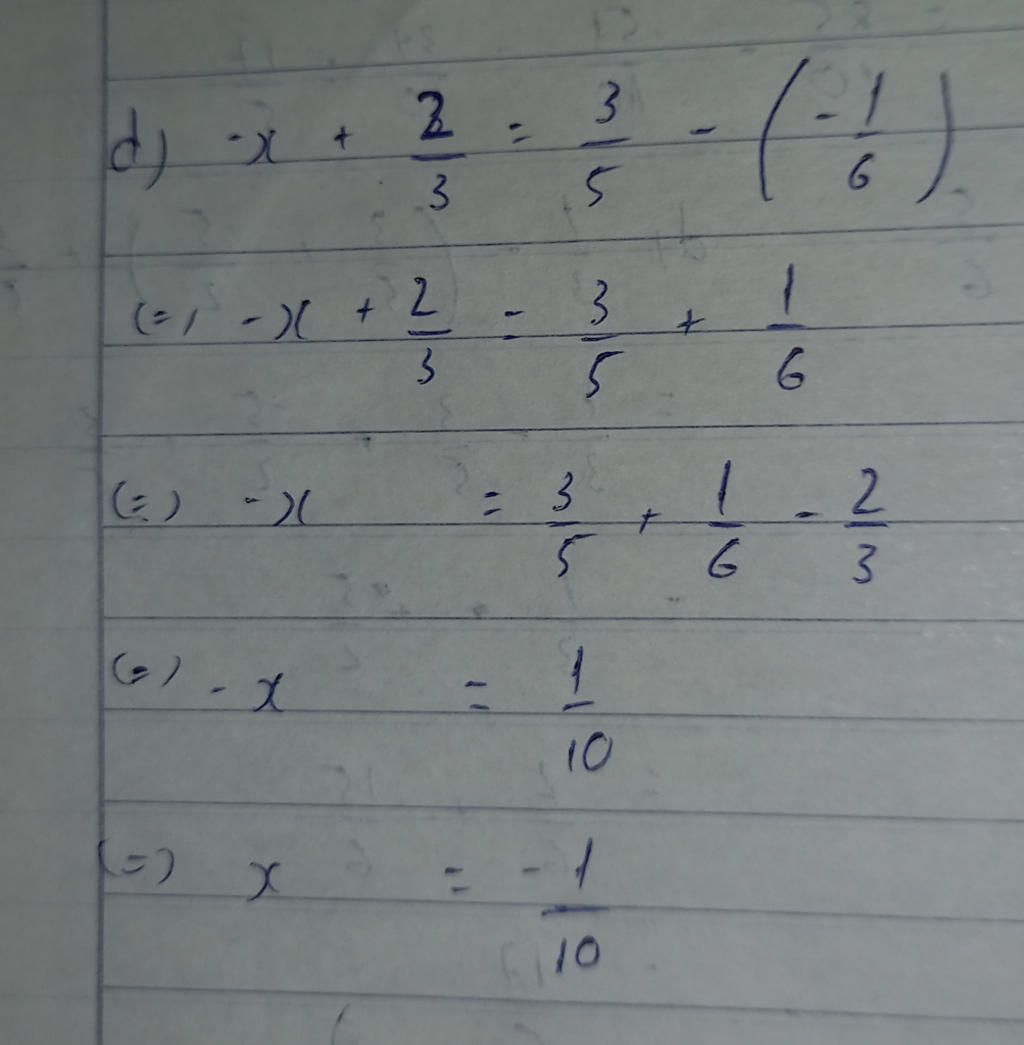 d) -x + 2/3 = 3/5 - (-1/6)
(=) -x + 2/3 = 3/5 + 1/6
(=) -x = 3/5 + 1/6 - 2/3
(=) -x = 1/10
(=) x = -1/10